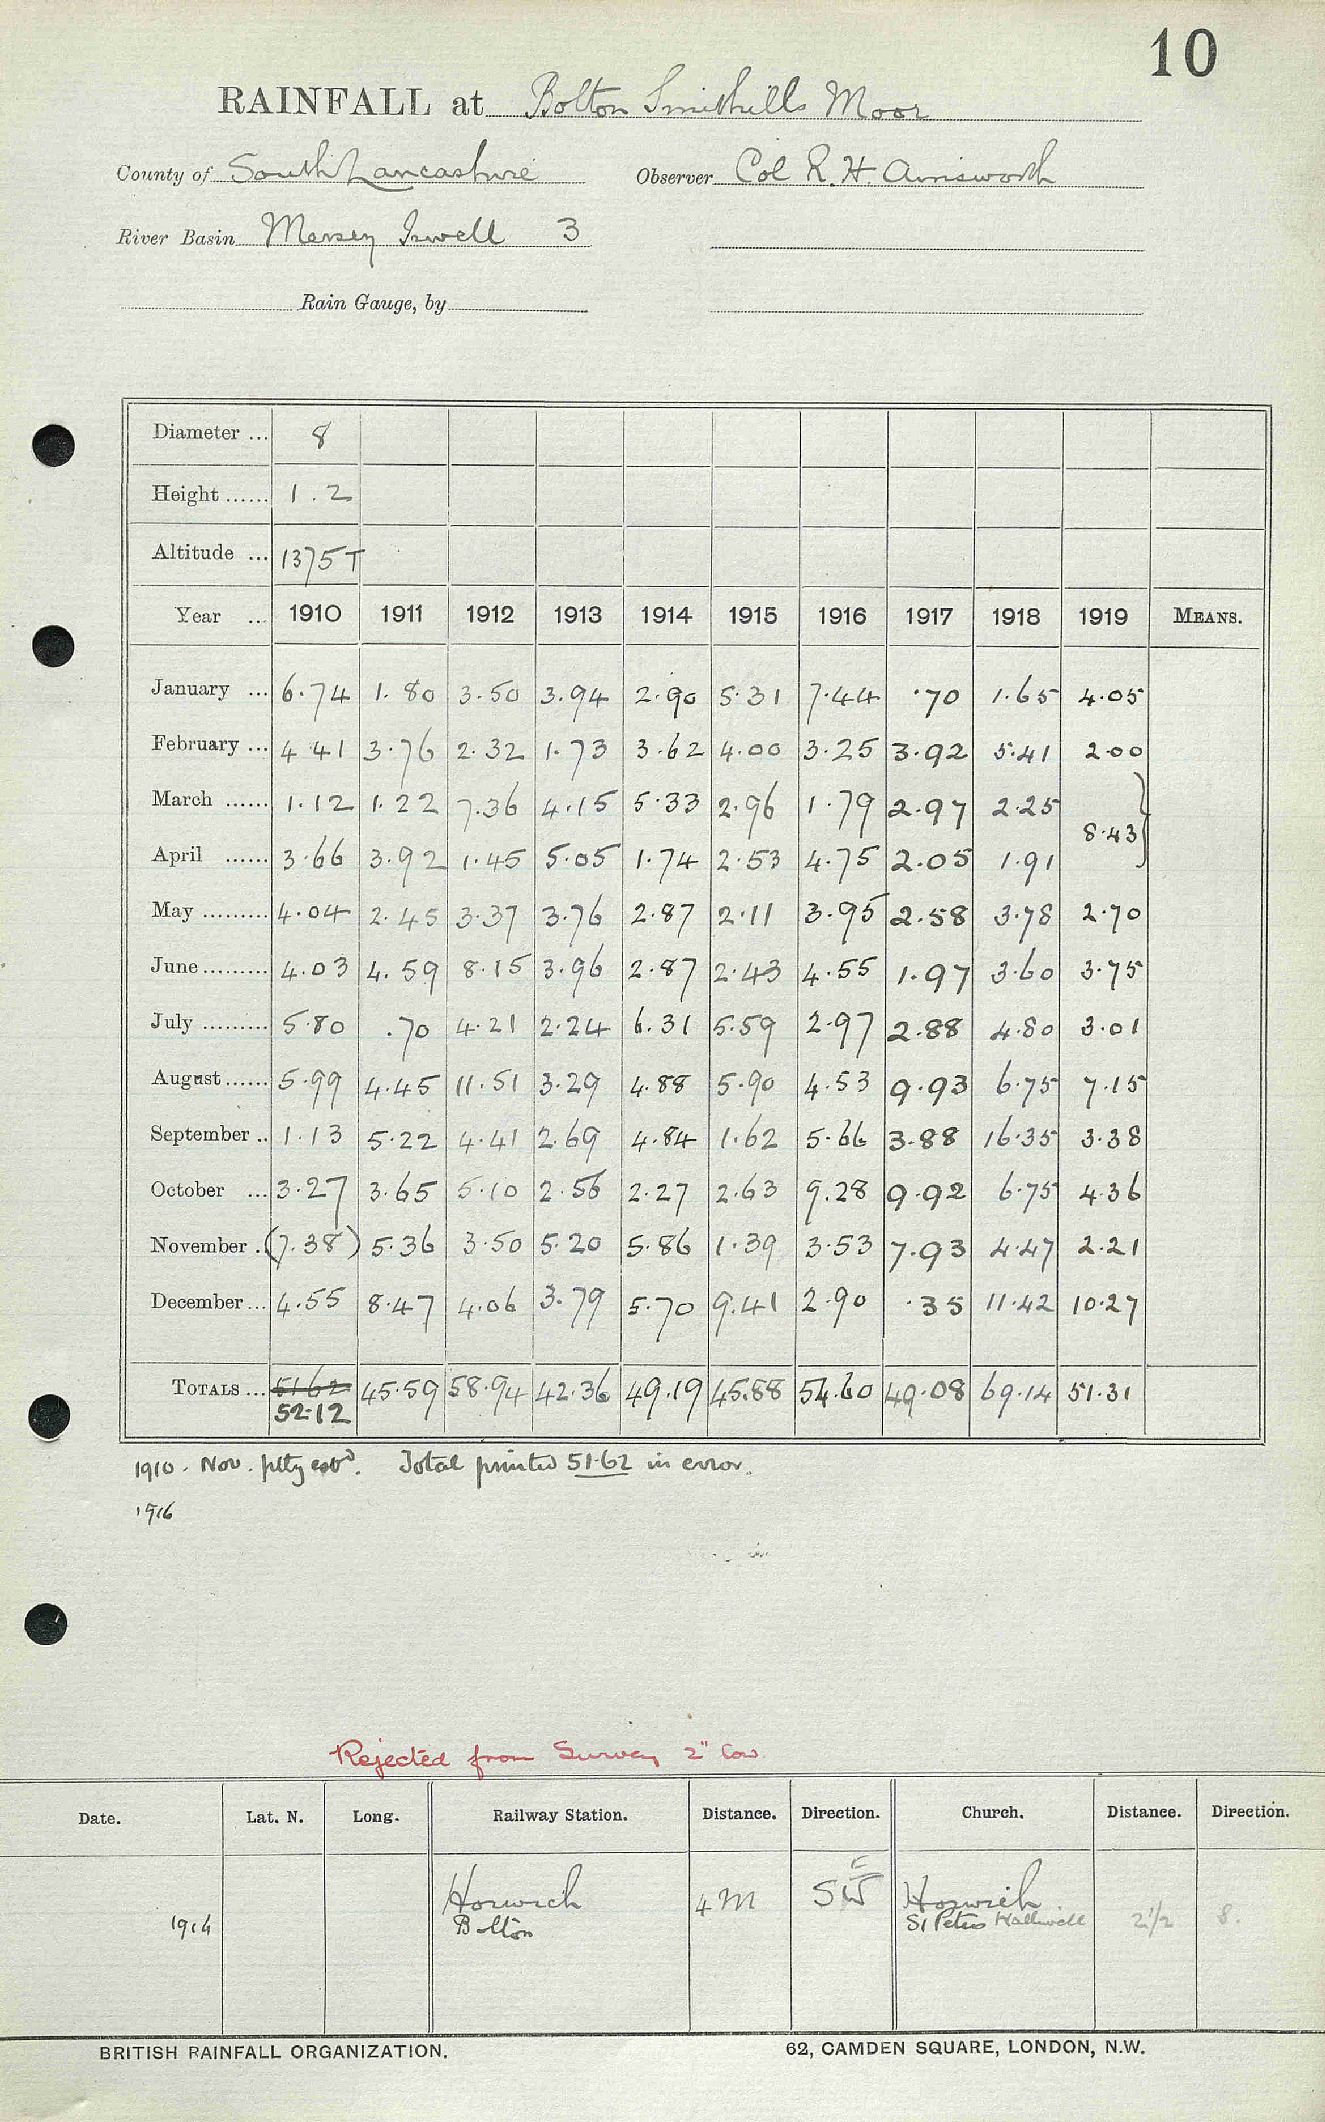 10
RAINFALL at Bolton Smithills Moor
County of South Lancashire Observer Col R. H. Ainsworth
River Basin Mersey Irwell 3
Rain Gauge, by
Diameter ... 8
Height ...... 1.2
Altitude ... 1375 T
Year ... 1910 1911 1912 1913 1914 1915 1916 1917 1918 1919 MEANS.
January ... 6.74 1.80 3.50 3.94 2.90 5.31 7.44 .70 1.65 4.05
February ... 4.41 3.76 2.32 1.73 3.62 4.00 3.25 3.92 5.41 2.00
March ...... 1.12 1.22 7.36 4.15 5.33 2.96 1.79 2.97 2.25
8.43}
April ...... 3.66 3.92 1.45 5.05 1.74 2.53 4.75 2.05 1.91
May ......... 4.04 2.45 3.37 3.76 2.87 2.11 3.95 2.58 3.78 2.70
June ......... 4.03 4.59 8.15 3.96 2.87 2.43 4.55 1.97 3.60 3.75
July ......... 5.80 .70 4.21 2.24 6.31 5.59 2.97 2.88 4.80 3.01
August ...... 5.99 4.45 11.51 3.29 4.88 5.90 4.53 9.93 6.75 7.15
September .. 1.13 5.22 4.41 2.69 4.84 1.62 5.66 3.88 16.35 3.38
October ... 3.27 3.65 5.10 2.56 2.27 2.63 9.28 9.92 6.75 4.36
November . (7.38) 5.36 3.50 5.20 5.86 1.39 3.53 7.93 4.47 2.21
December ... 4.55 8.47 4.06 3.79 5.70 9.41 2.90 .35 11.42 10.27
TOTALS ... 51.62 45.59 58.94 42.36 49.19 45.88 54.60 49.08 69.14 51.31
52.12
1910. Nov. ptly estd. Total printed 51.62 in error.
1916
Rejected from Survey 2" low
Date. Lat. N. Long. Railway Station. Distance. Direction. Church. Distance. Direction.
Horwich 4 M SW E Horwich
1914 Bolton St Peters Halliwell 2 1/2 S.
BRITISH RAINFALL ORGANIZATION. 62, CAMDEN SQUARE, LONDON, N.W.